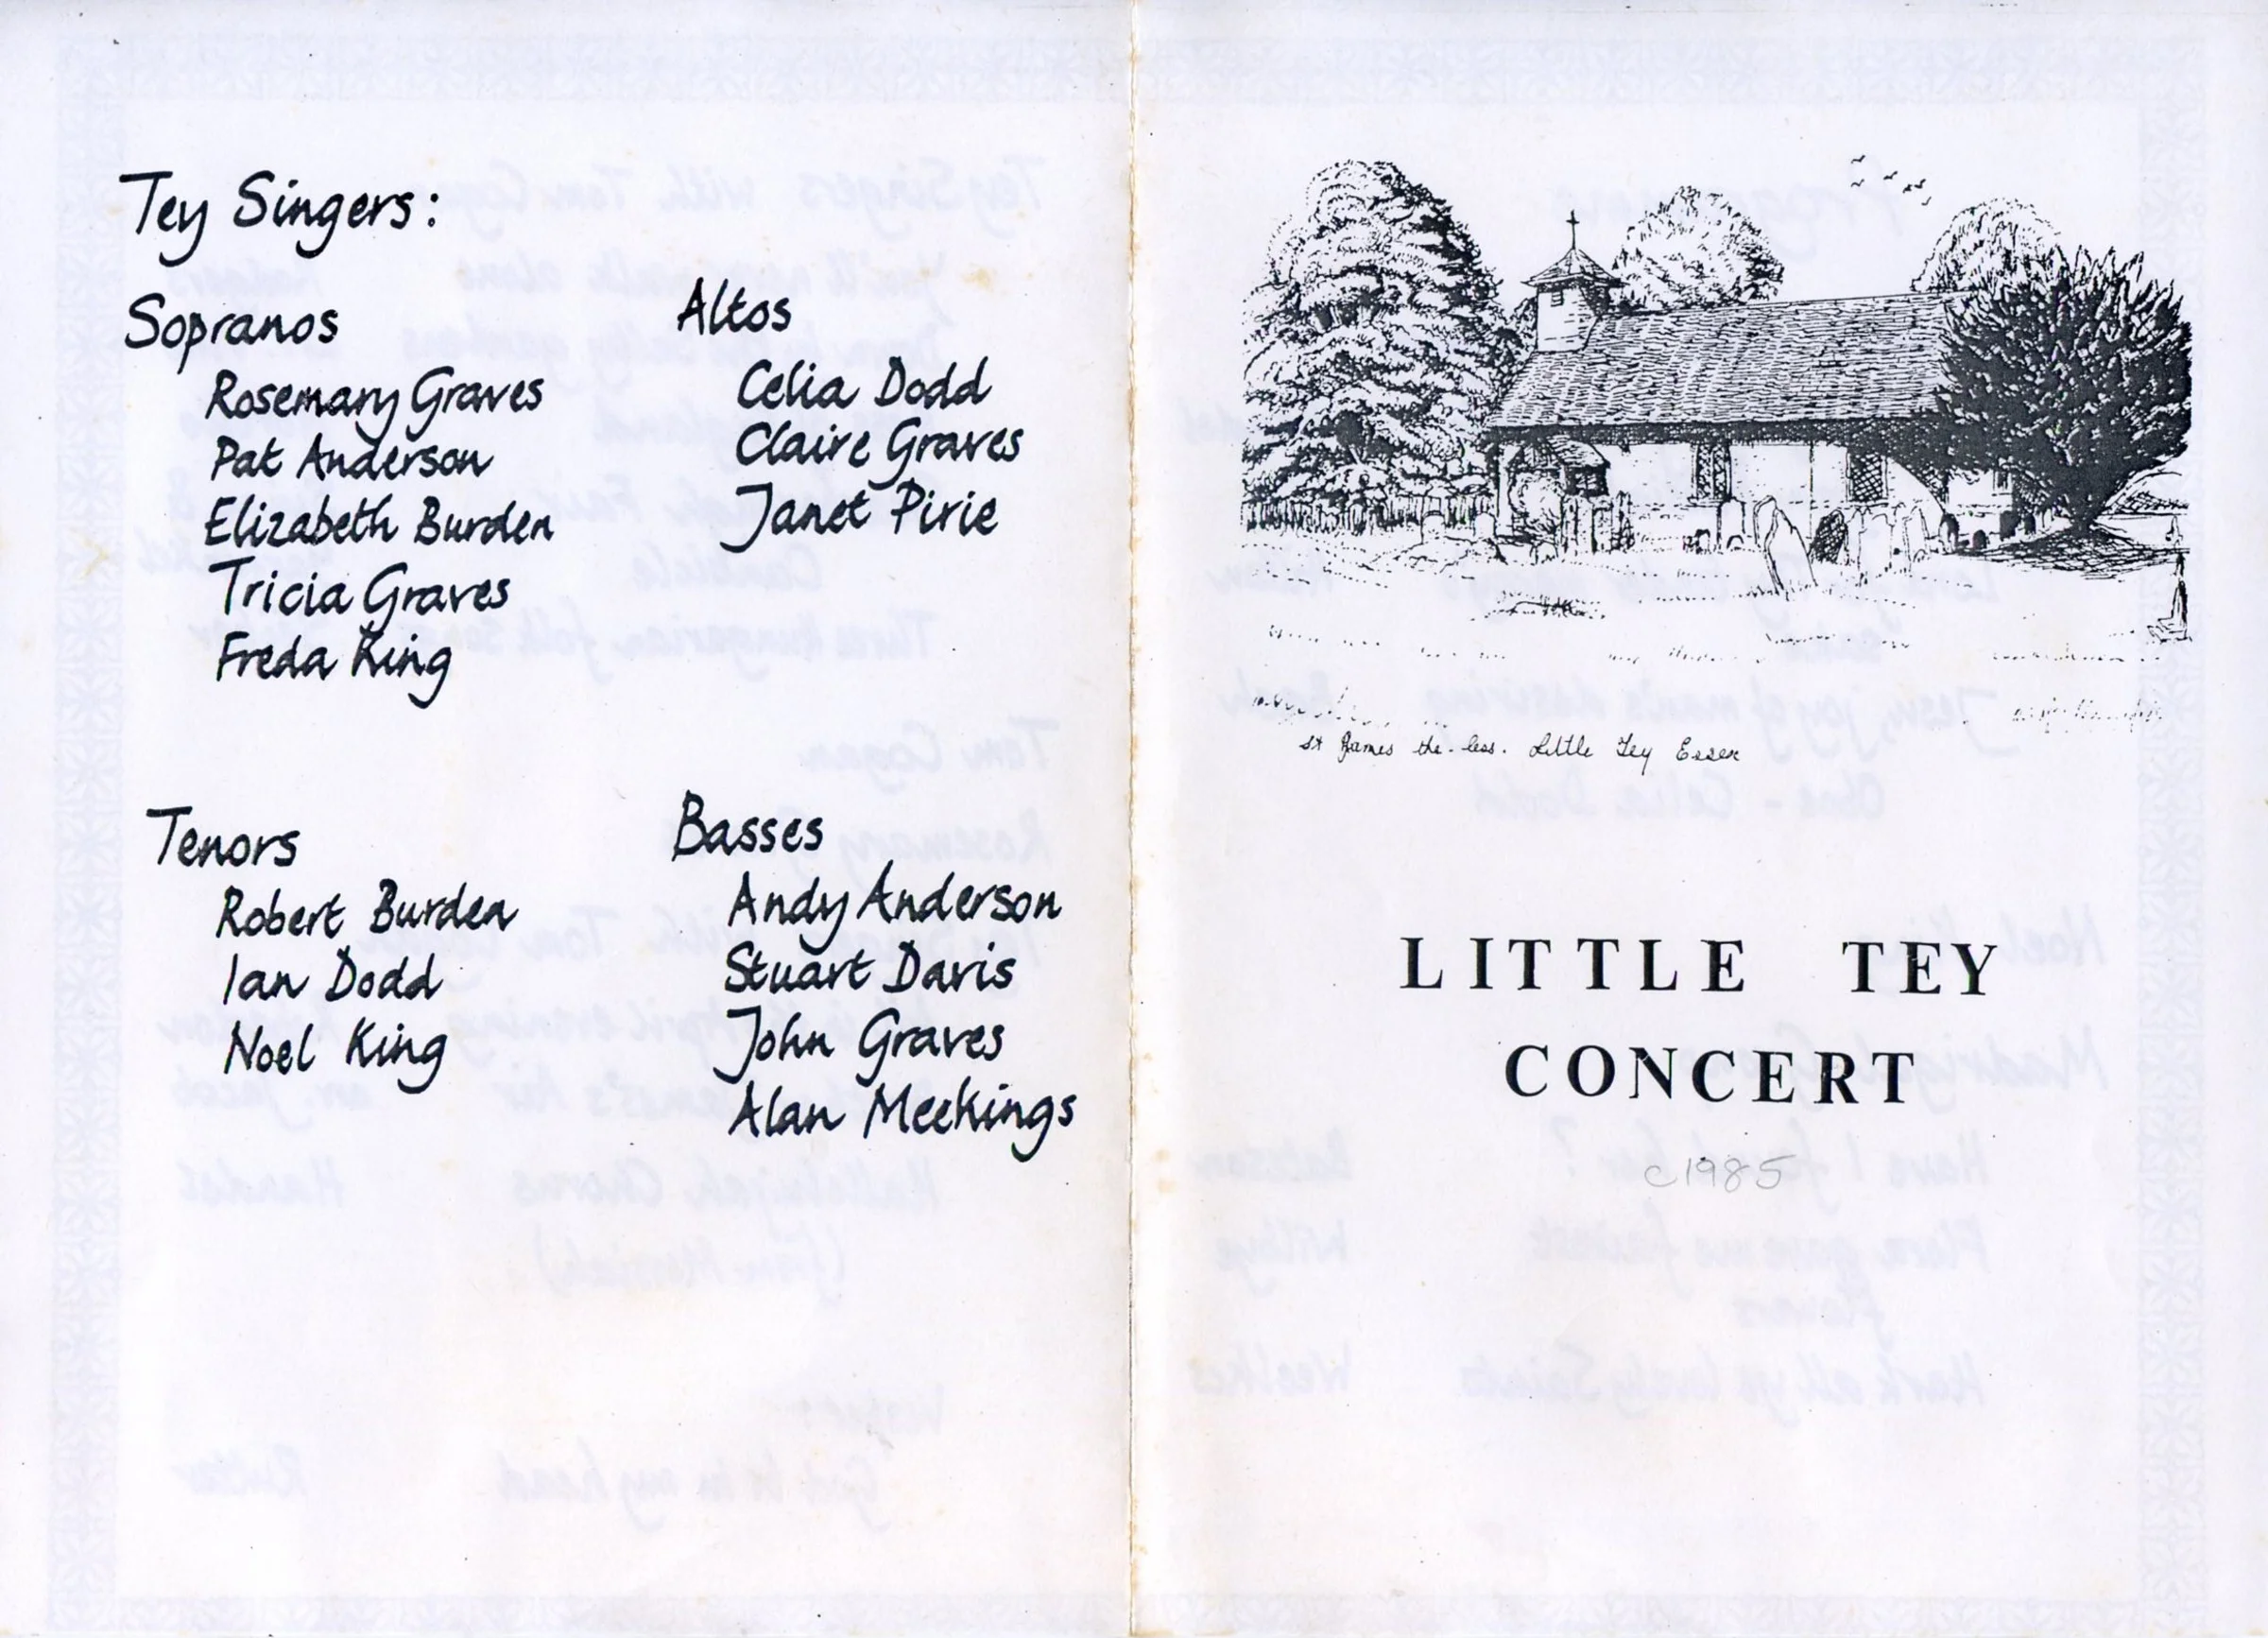 Tey Singers:
Sopranos
Rosemary Graves
Pat Anderson
Elizabeth Burden
Tricia Graves
Freda King
Altos
Celia Dodd
Claire Graves
Janet Pirie
Tenors
Robert Burden
Ian Dodd
Noel King
Basses
Andy Anderson
Stuart Davis
John Graves
Alan Meekings
St James the-less. Little Tey Essex
LITTLE TEY
CONCERT
c1985